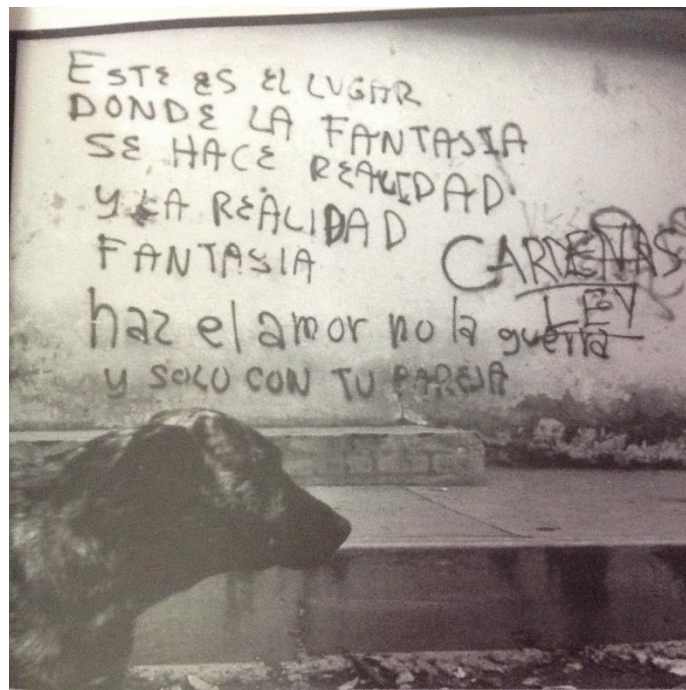 ESTE ES EL LUGAR
DONDE LA FANTASIA
SE HACE REALIDAD
Y LA REALIDAD
FANTASIA
CARDENAS
LEY
haz el amor no la guerra
Y SOLO CON TU PAREJA